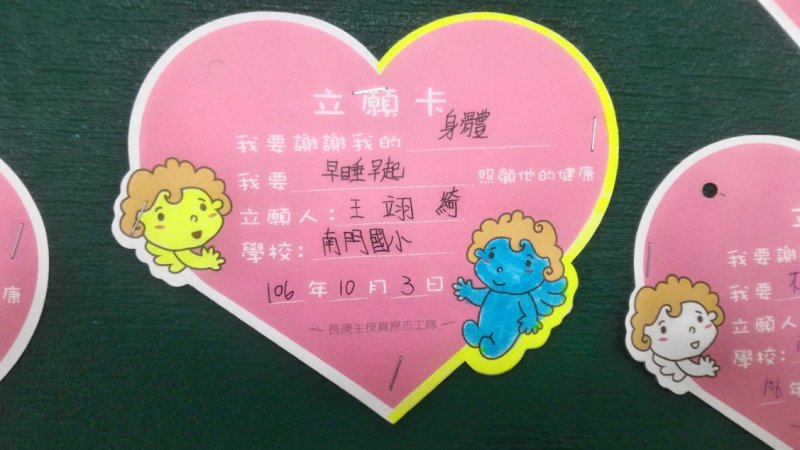 立願卡
我要謝謝我的 身體
我要 早睡早起 照顧他的健康
立願人：王翊綺
學校：南門國小
106年10月3日
長庚生技真原志工隊
康
我要謝
我要
立願人
學校：
106年